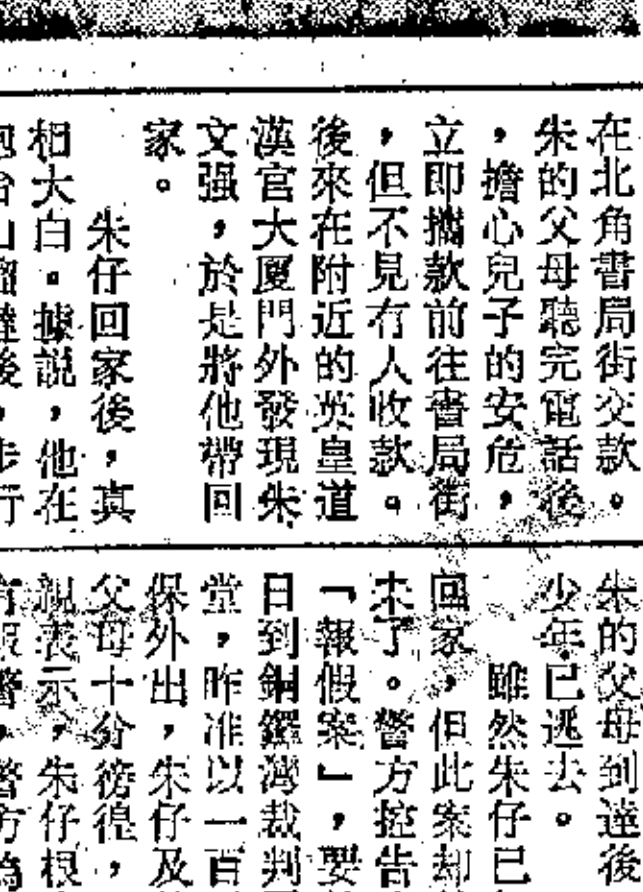 在北角書局街交款。
朱的父母聽完電話後
，擔心兒子的安危，
立即攜款前往書局街
，但不見有人收款。
後來在附近的英皇道
漢宮大廈門外發現朱
文强，於是將他帶回
家。
朱仔回家後，真
相大白。據説，他在
台山溜達後，步行
朱的父母到達後
少年已逃去。
雖然朱仔已
回家，但此案却
未了。警方控告
「報假案」，要
日到銅鑼灣裁判
堂，昨准以一百
保外出，朱仔及
父母十分徬徨，
親表示，朱仔根
有報警，警方為